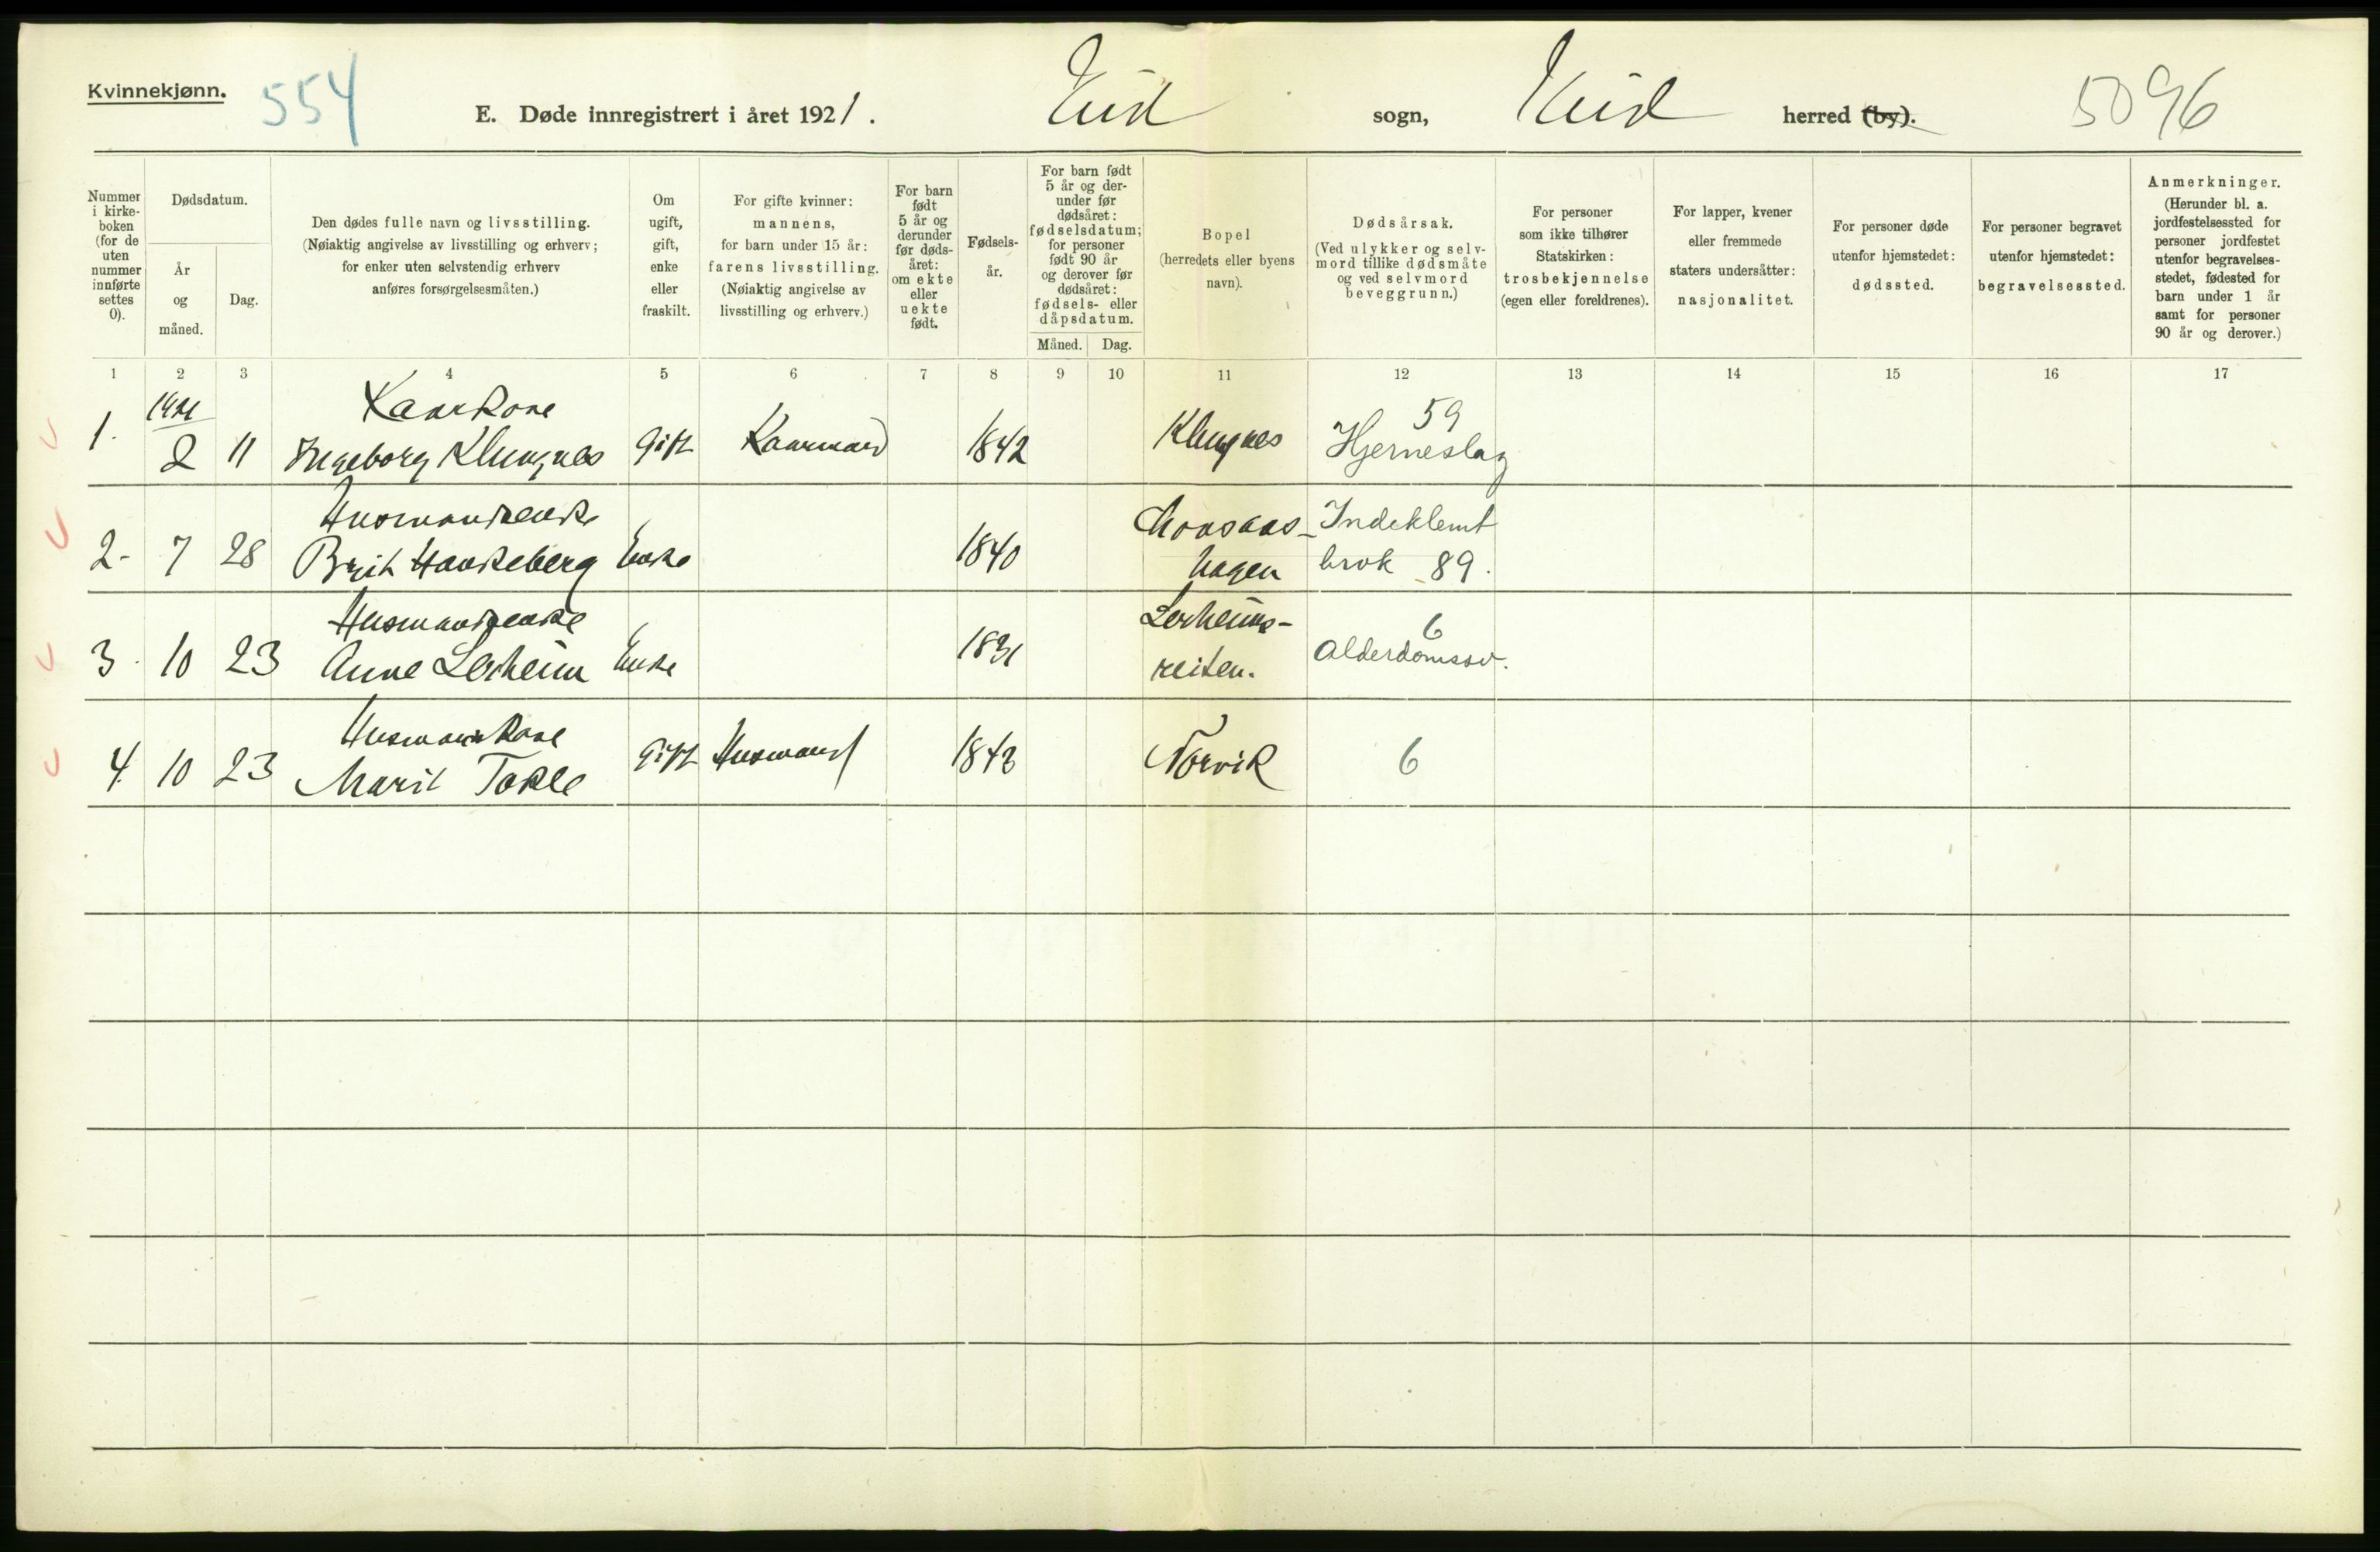 Kvinnekjønn.
554
E. Døde innregistrert i året 1921.
Eid
sogn,
Eid
herred (by).
5096
Nummer i kirke-boken (for de uten nummer innførte settes 0).
Dødsdatum.
År og måned.
Dag.
Den dødes fulle navn og livsstilling.
(Nøiaktig angivelse av livsstilling og erhverv;
for enker uten selvstendig erhverv
anføres forsørgelsesmåten.)
Om ugift, gift, enke eller fraskilt.
For gifte kvinner:
mannens,
for barn under 15 år:
farens livsstilling.
(Nøiaktig angivelse av
livsstilling og erhverv.)
For barn født 5 år og derunder før døds-året: om ekte eller uekte født.
Fødsels-år.
For barn født
5 år og der-
under før
dødsåret:
fødselsdatum;
for personer
født 90 år
og derover før
dødsåret:
fødsels- eller
dåpsdatum.
Måned. Dag.
Bopel
(herredets eller byens
navn).
Dødsårsak.
(Ved ulykker og selv-
mord tillike dødsmåte
og ved selvmord
beveggrunn.)
For personer
som ikke tilhører
Statskirken:
trosbekjennelse
(egen eller foreldrenes).
For lapper, kvener
eller fremmede
staters undersåtter:
nasjonalitet.
For personer døde
utenfor hjemstedet:
dødssted.
For personer begravet
utenfor hjemstedet:
begravelsessted.
Anmerkninger.
(Herunder bl. a.
jordfestelsessted for
personer jordfestet
utenfor begravelses-
stedet, fødested for
barn under 1 år
samt for personer
90 år og derover.)
1 2 3 4 5 6 7 8 9 10 11 12 13 14 15 16 17
1921 Kaarkone 59
1. 2 11 Ingeborg Klungnes Gift Kaarmand 1842 Klungnes Hjerneslag
Husmandsenke Indeklemt
2- 7 28 Brit Haukeberg Enke 1840 hagen brok 89.
Husmandsenke Lerheims- 6
3. 10 23 Anne Lerheim Enke 1831 reiten. Alderdomssv.
Husmandskone
4. 10 23 Marit Tokle Gift Husmand 1843 Norvik 6